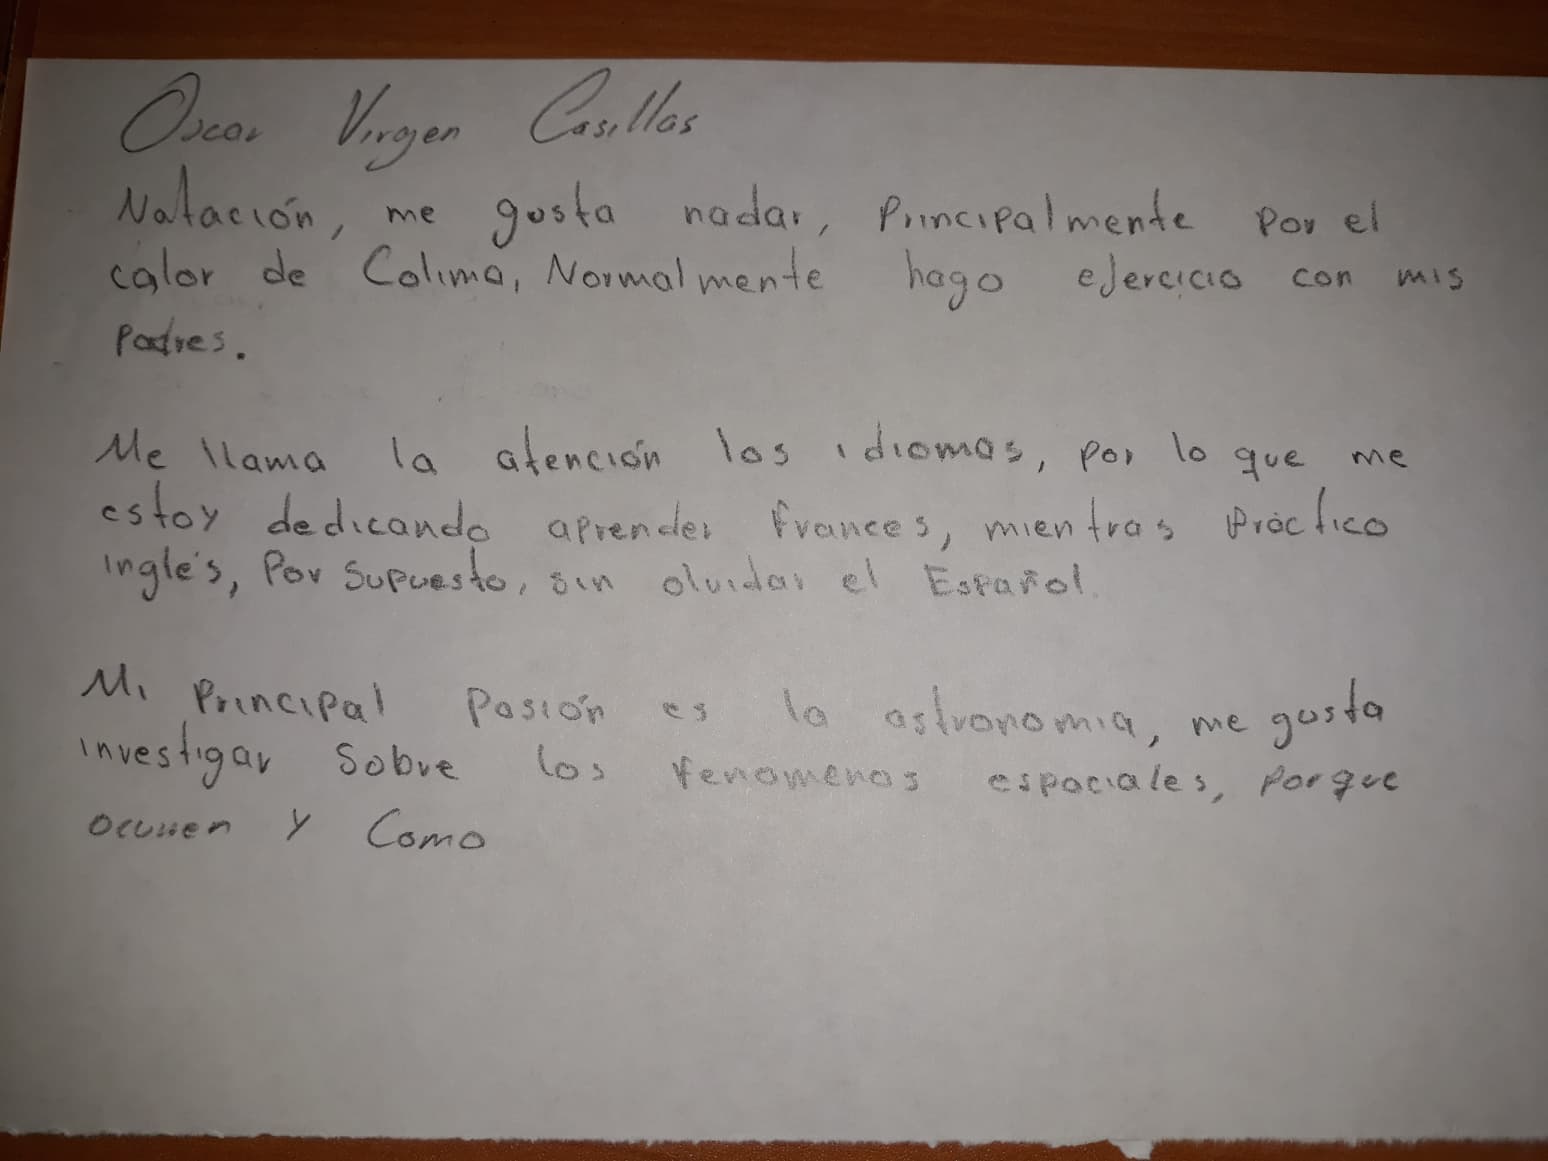 Oscar Virgen Casillas
Natación, me gusta nadar, Principalmente Por el
calor de Colima, Normalmente hago ejercicio con mis
Padres.
Me llama la atención los idiomas, por lo que me
estoy dedicando aprender frances, mientras Práctico
inglés, Por Supuesto, sin olvidar el Español.
Mi Principal Pasión es la astronomia, me gusta
investigar Sobre los fenomenos espaciales, Porque
ocurren y Como